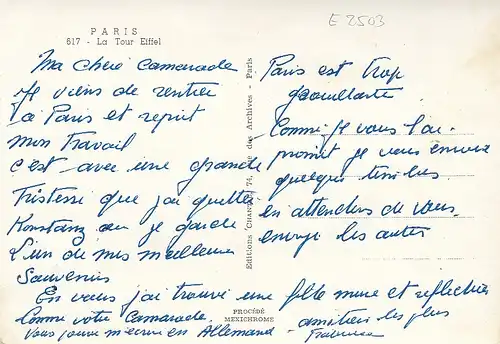 E 2503
PARIS
617 - La Tour Eiffel
Ma chère Camarade
Je viens de rentrer
à Paris et reprit
mon Travail
c'est avec une grande
Tristesse que j'ai quitté
Konstanz ou je garde
l'un de mes meilleurs
Souvenirs
En vous j'ai trouvé une fille mure et
Comme votre Camarade.
Vous pouvez m'ecrire en Allemand -
Paris est trop
Comme je vous l'ai
promit je vous envoie
quelques timbres
en attenders de vous
envoye les autres
amitiés les plus
Editions CHANTAL, 74, rue des Archives - Paris
PROCÉDÉ
MEXICHROME